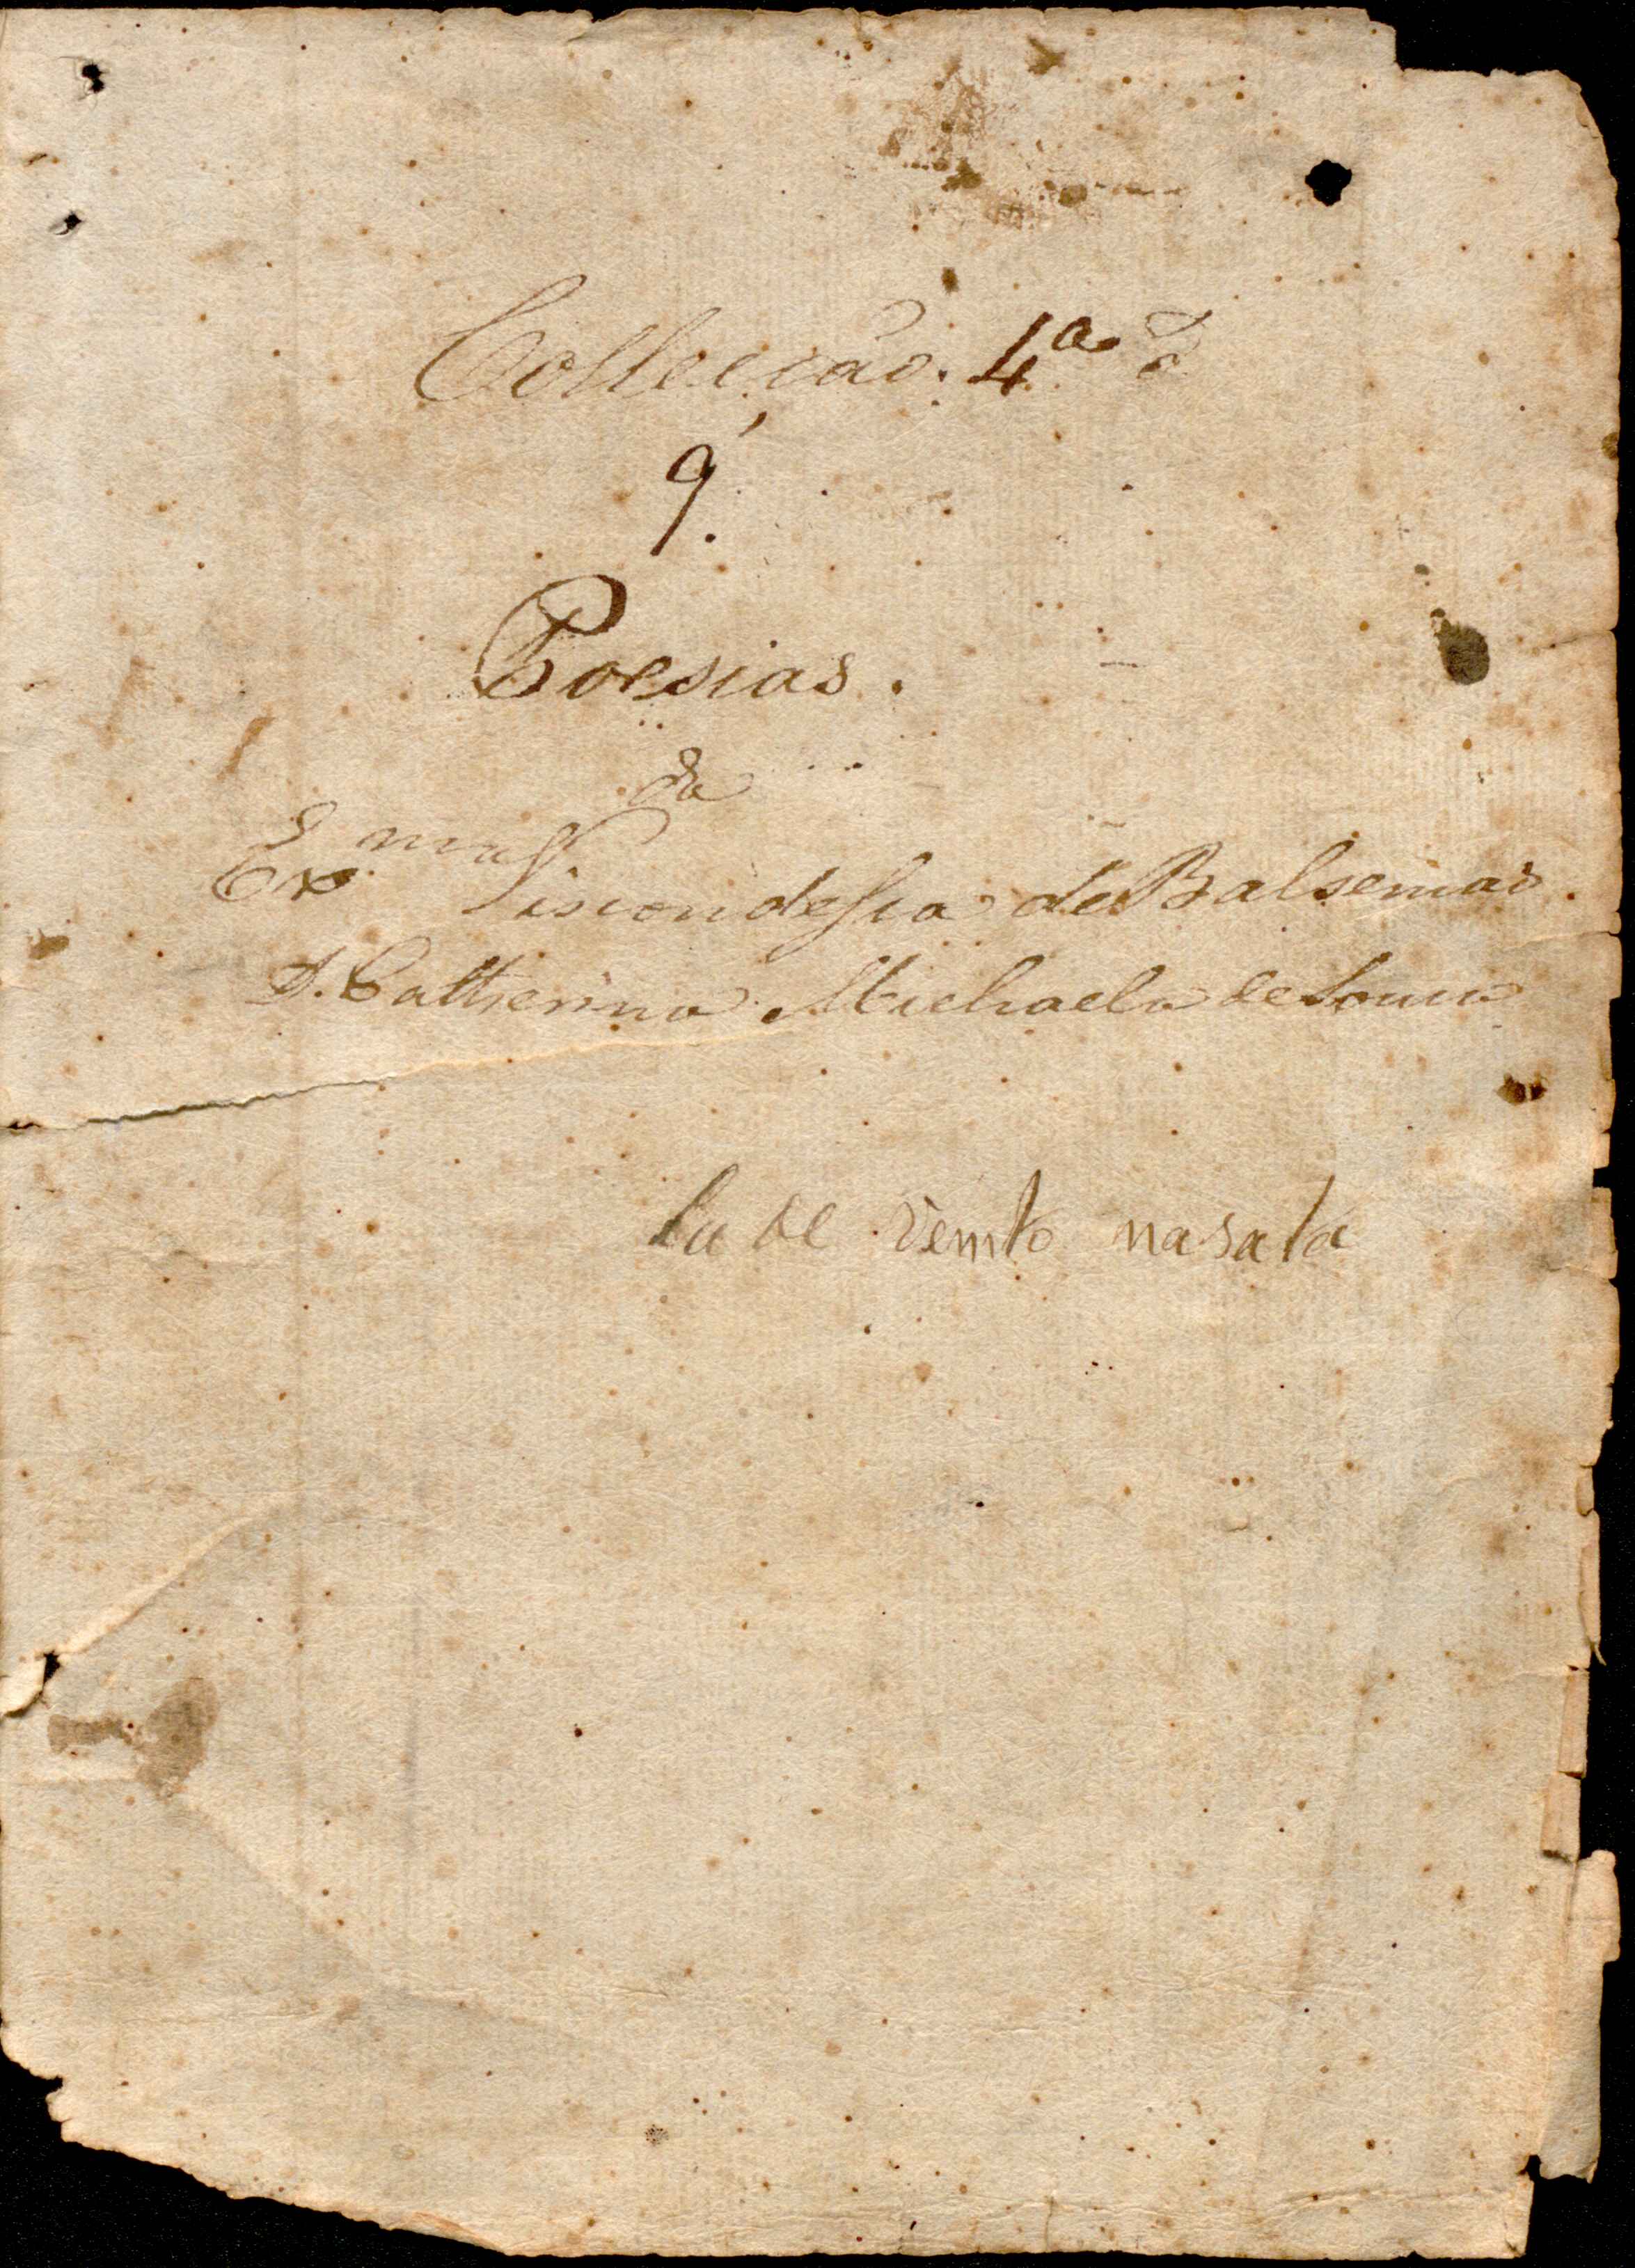 Collecção. 4ª
9.
Poesias.
da
Exma Viscondessa de Balsemão.
D. Catherina Michaela de Sousa
la de vento na sala